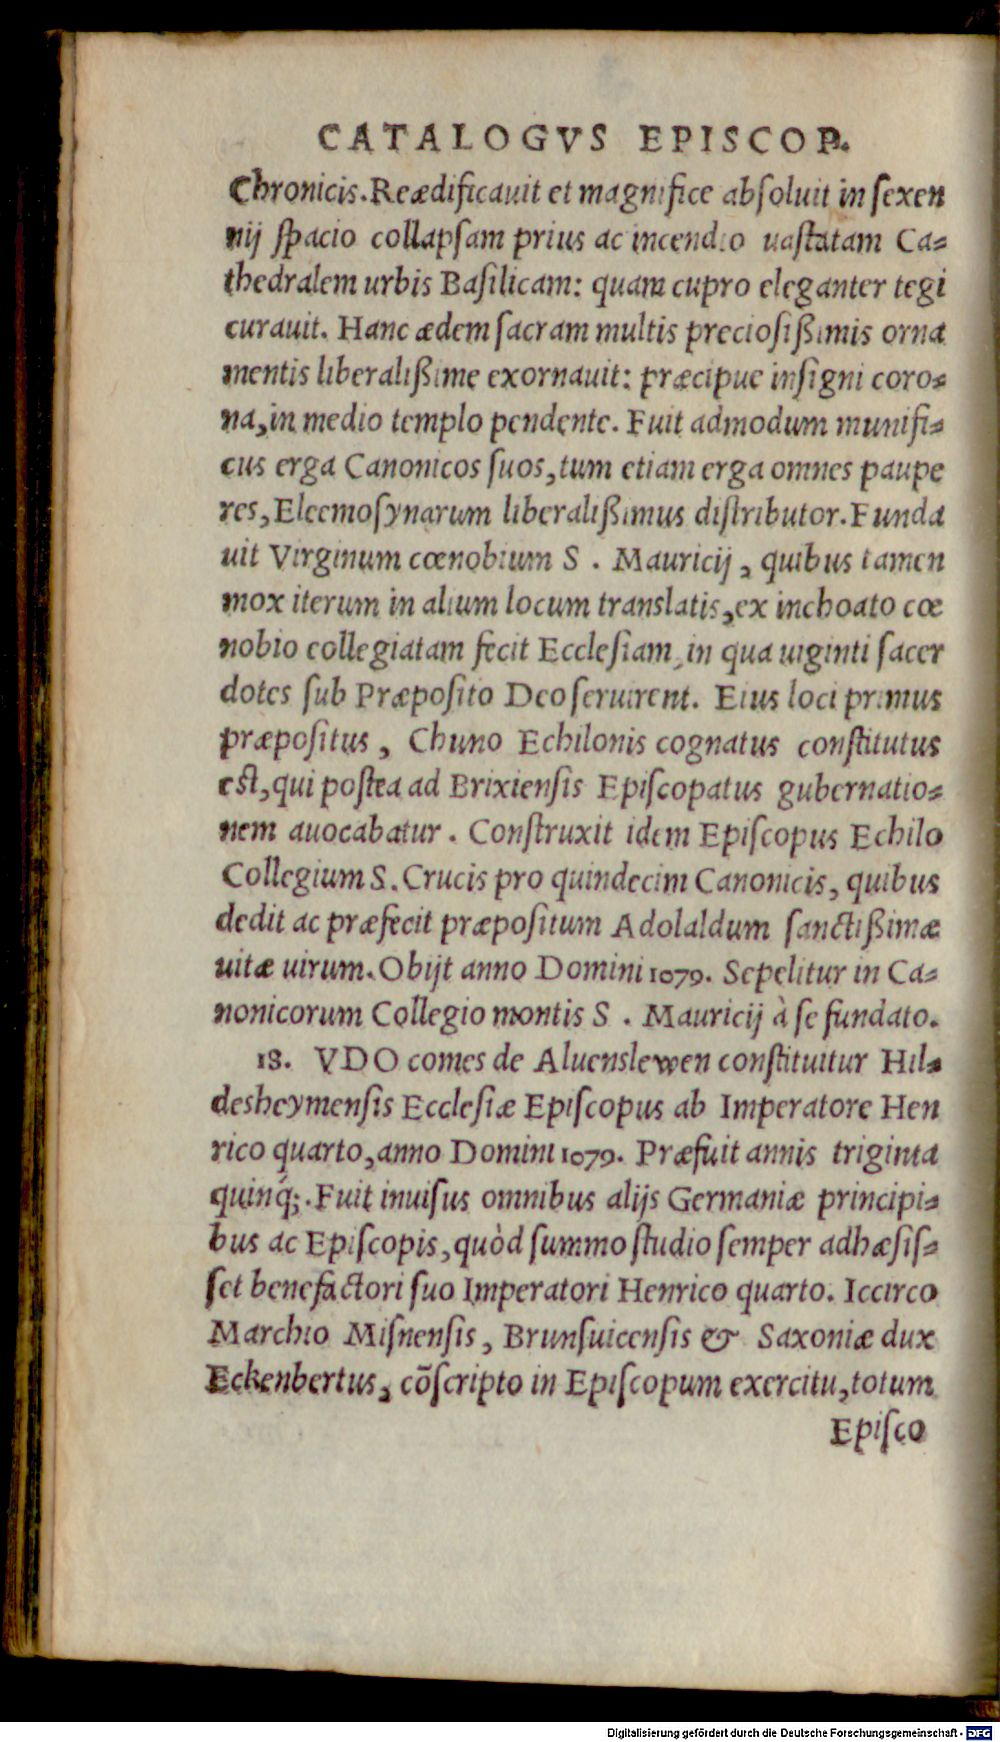 CATALOGVS EPISCOP.
Chronicis. Reædificauit et magnifice absoluit in sexen
nij spacio collapsam prius ac incendio uastatam Ca=
thedralem urbis Basilicam: quam cupro eleganter tegi
curauit. Hanc ædem sacram multis preciosißimis orna
mentis liberalißime exornauit: præcipue insigni coro=
na, in medio templo pendente. Fuit admodum munifi=
cus erga Canonicos suos, tum etiam erga omnes paupe
res, Eleemosynarum liberalißimus distributor. Funda
uit Virginum cœnobium S. Mauricij, quibus tamen
mox iterum in alium locum translatis, ex inchoato cœ
nobio collegiatam fecit Ecclesiam, in qua uiginti sacer
dotes sub Præposito Deo seruirent. Eius loci primus
præpositus, Chuno Echilonis cognatus constitutus
est, qui postea ad Brixiensis Episcopatus gubernatio=
nem auocabatur. Construxit idem Episcopus Echilo
Collegium S. Crucis pro quindecim Canonicis, quibus
dedit ac præfecit præpositum Adolaldum sanctißimæ
uitæ uirum. Obijt anno Domini 1079. Sepelitur in Ca=
nonicorum Collegio montis S. Mauricij à se fundato.
18. VDO comes de Aluenslewen constituitur Hil=
desheymensis Ecclesiæ Episcopus ab Imperatore Hen
rico quarto, anno Domini 1079. Præfuit annis triginta
quinq́;. Fuit inuisus omnibus alijs Germaniæ principi=
bus ac Episcopis, quòd summo studio semper adhæsis=
set benefactori suo Imperatori Henrico quarto. Iccirco
Marchio Misnensis, Brunsuicensis & Saxoniæ dux
Eckenbertus, cōscripto in Episcopum exercitu, totum
Episco
Digitalisierung gefördert durch die Deutsche Forschungsgemeinschaft - DFG